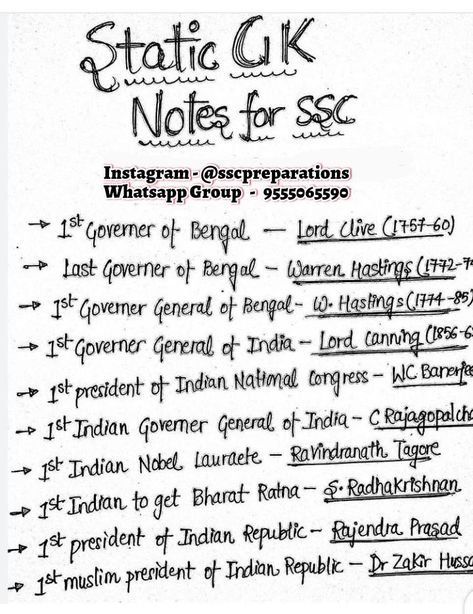 Static GK
Notes for SSC
Instagram - @sscpreparations
Whatsapp Group - 9555065590
→ 1st Governer of Bengal — Lord Clive (1757-60)
→ Last Governer of Bengal - Warren Hastings (1772-74
→ 1st Governer General of Bengal- W. Hastings (1774-85)
→ 1st Governer General of India - Lord Canning (1856-6
→ 1st president of Indian National Congress - WC Banerjee
→ 1st Indian Governer General of India - C.Rajagopalcha
→ 1st Indian Nobel Lauraete - Ravindranath Tagore
→ 1st Indian to get Bharat Ratna - S. Radhakrishnan
→ 1st president of Indian Republic - Rajendra Prasad
→ 1st muslim president of Indian Republic - Dr Zakir Hussa